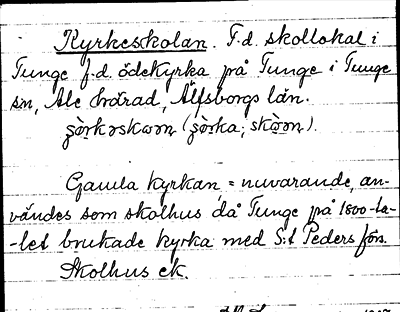 Kyrkeskolan. F.d. skollokal i
Tunge f.d. ödekyrka på Tunge i Tunge
sn, Ale härad, Älfsborgs län.
(skɷ̀ɷn).
Gamla kyrkan, = nuvarande, an-
vändes som skolhus då Tunge på 1800-ta-
-let brukade kyrka med S:t Peders förs.
Skolhus ek.